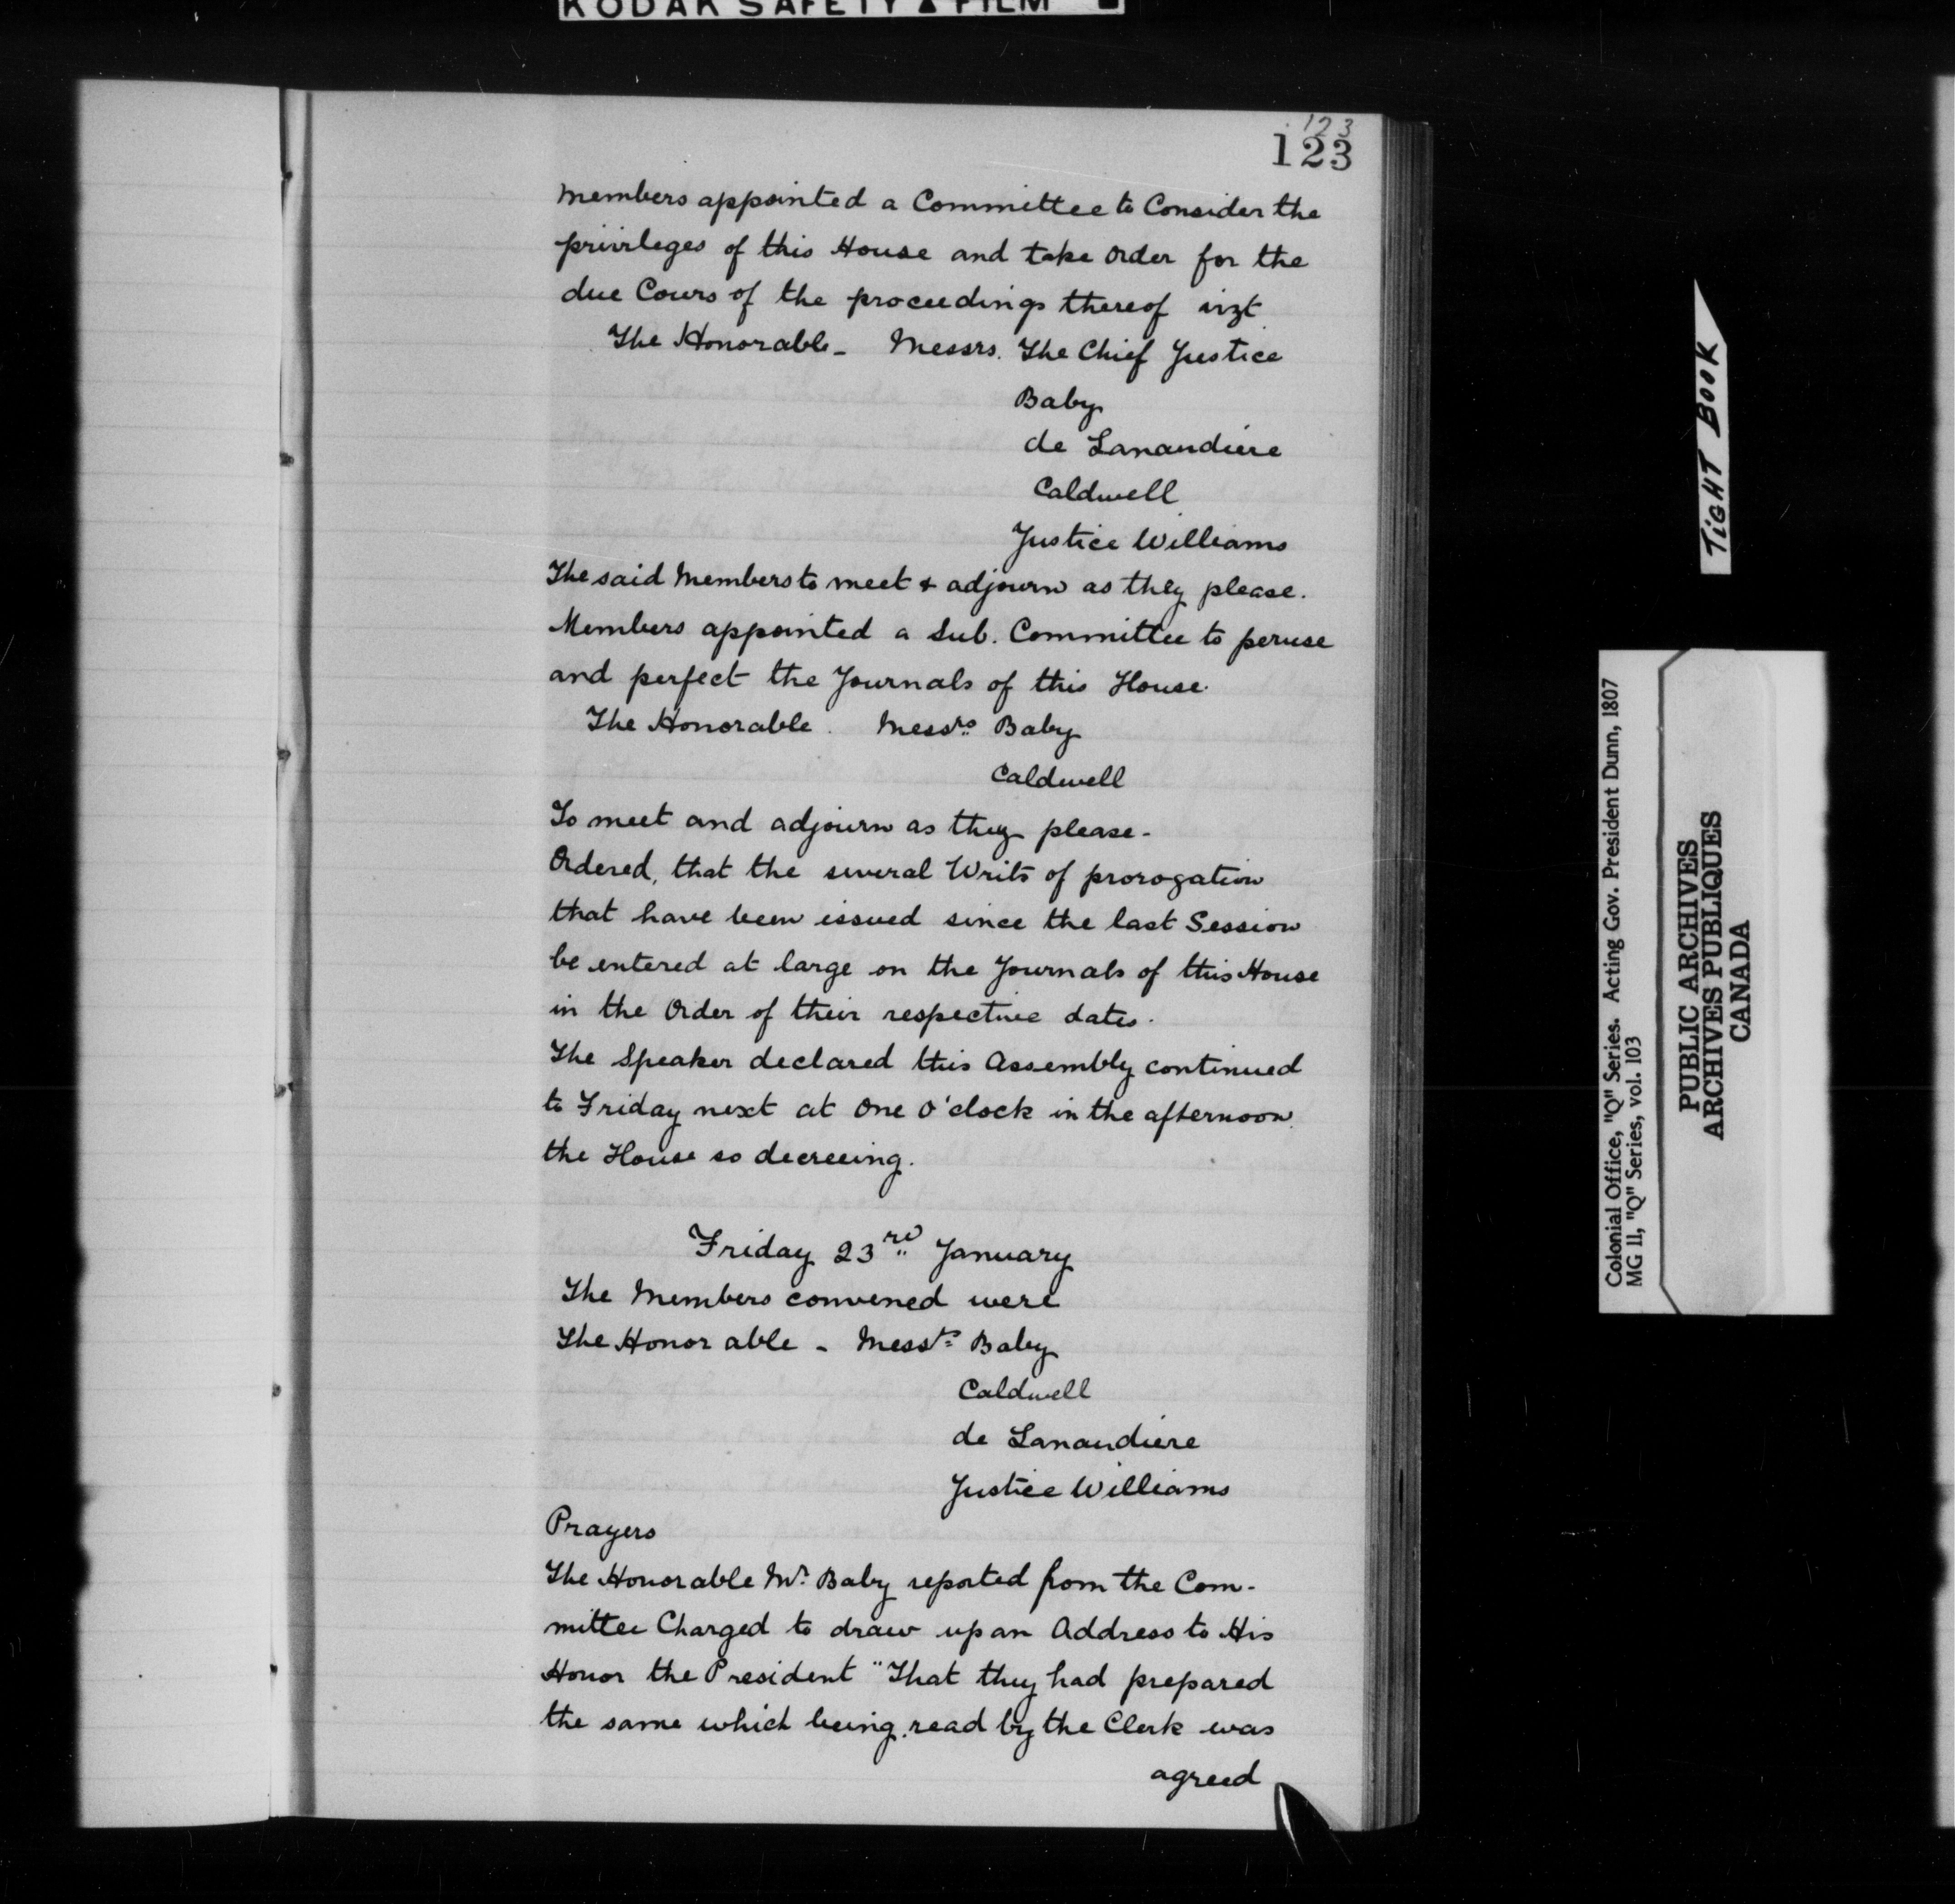 KODAK SAFETY ▲ FILM
123
123
Members appointed a Committee to Consider the
privileges of this House and take Order for the
due Cours of the proceedings thereof vizt
The Honorable - Messrs. The Chief Justice
Baby
de Lanaudiere
Caldwell
Justice Williams
The said Members to meet & adjourn as they please.
Members appointed a Sub. Committee to peruse
and perfect the Journals of this House.
The Honorable. Messrs Baby
Caldwell
To meet and adjourn as they please -
Ordered, that the several Writs of prorogation
that have been issued since the last Session
be entered at large on the Journals of this House
in the Order of their respective dates.
The Speaker declared this Assembly continued
to Friday next at One O'clock in the afternoon.
the House so decreeing.
Friday 23rd January
The Members convened were
The Honor able - Messrs Baby
Caldwell
de Lanaudiere
Justice Williams
Prayers
The Honorable Mr. Baby reported from the Com-
mittee Charged to draw up an Address to His
Honor the President "That they had prepared
the same which being read by the Clerk was
agreed
TIGHT BOOK
Colonial Office, "Q" Series. Acting Gov. President Dunn, 1807
MG 11, "Q" Series, vol. 103
PUBLIC ARCHIVES
ARCHIVES PUBLIQUES
CANADA